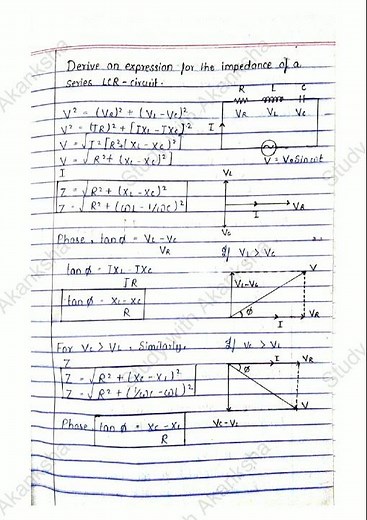 Derive an expression for the impedance of a
series LCR-circuit.
R L C
V² = (VR)² + (VL-VC)²
VR VL VC
V² = (IR)² + [IXL-IXC]²
I
V = √I²[R²+(XL-XC)²]
V = √R²+(XL-XC)²]
I
V = V₀ Sin ωt
VL
Z = √R² + (XL-XC)²
Z = √R² + (ωL-1/ωC)²
I VR
VC
Phase, tan ϕ = VL-VC
VR
If VL > VC
tan ϕ = IXL-IXC
IR
V
VL-VC
tan ϕ = XL-XC
R
ϕ
I VR
For VC > VL, Similarly,
If VC > VL
Z
Z = √R² + (XC-XL)²
Z = √R² + (1/ωC-ωL)²
I VR
ϕ
V
VC-VL
Phase, tan ϕ = XC-XL
R
Study with Akanksha